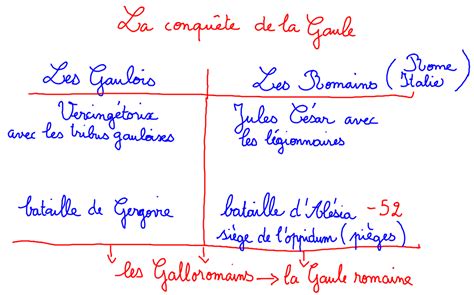 La conquête de la Gaule
Les Gaulois
Les Romains (Rome Italie)
Vercingétorix
avec les tribus gauloises
Jules César avec
les légionnaires
bataille de Gergovie
bataille d'Alésia -52
siège de l'oppidum (pièges)
les Galloromains → la Gaule romaine